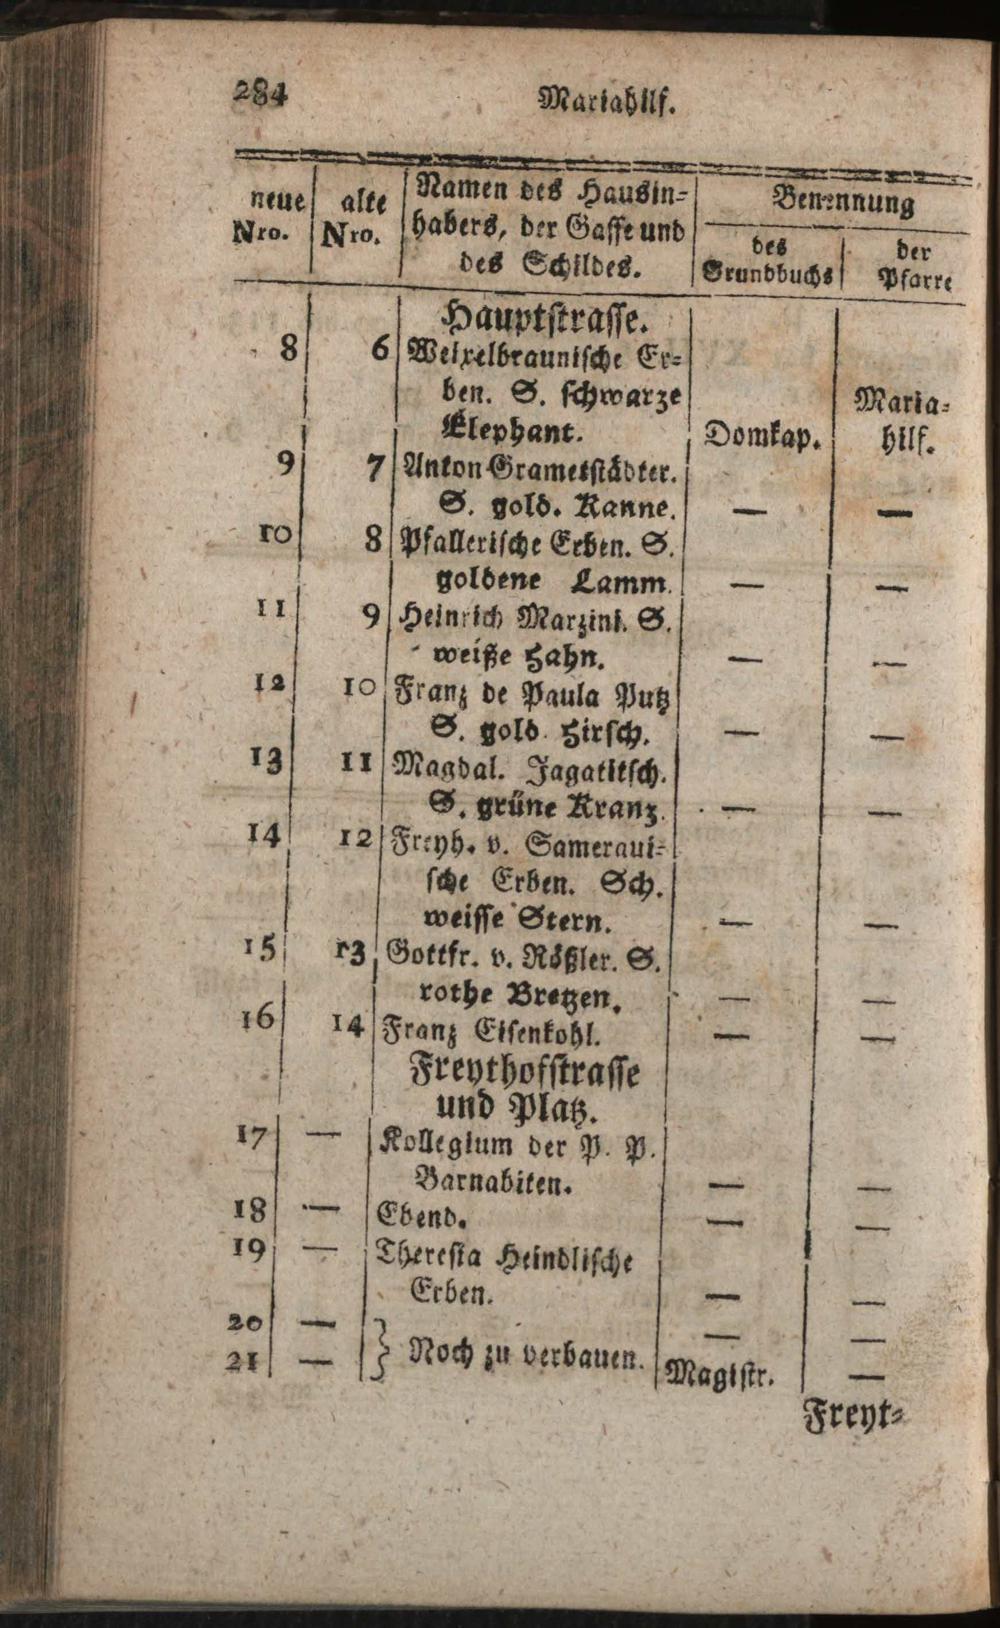 284 Mariahilf.
neue Nro. alte Nro. Namen des Hausin- Benennung
habers, der Gasse und des Grundbuchs der Pfarre
des Schildes.
Hauptstrasse.
8 6 Weixelbraunische Er-
ben. S. schwarze Maria-
Elephant. Domkap. hilf.
9 7 Anton Grametstädter.
S. gold. Kanne. — —
10 8 Pfallerische Erben. S.
goldene Lamm. — —
11 9 Heinrich Marzini. S.
weiße Hahn. — —
12 10 Franz de Paula Putz
S. gold. Hirsch. — —
13 11 Magdal. Jagatitsch.
S. grüne Kranz. — —
14 12 Freyh. v. Sameraui-
sche Erben. Sch.
weisse Stern. — —
15 13 Gottfr. v. Rößler. S.
rothe Bretzen. — —
16 14 Franz Eisenkohl. — —
Freythofstrasse
und Platz.
17 — Kollegium der P. P.
Barnabiten. — —
18 — Ebend. — —
19 — Theresia Heindlische
Erben. — —
20 — } Noch zu verbauen. — —
21 — Magistr. —
Freyt-